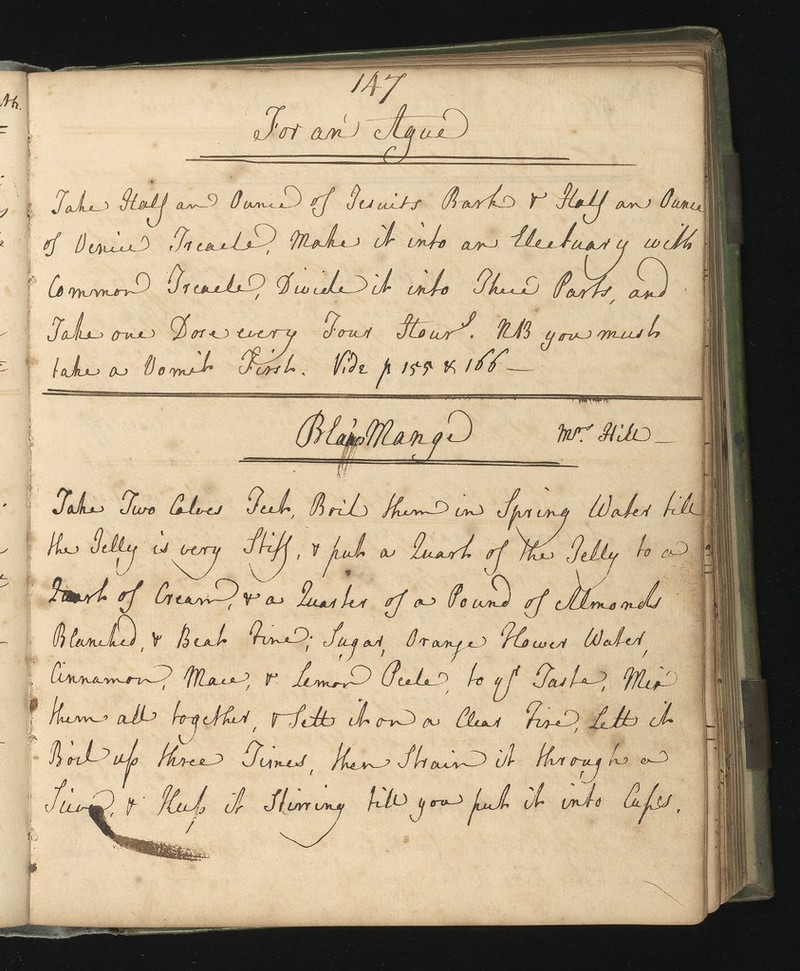 147
For an Ague
Take Half an Ounce of Jesuits Bark & Half an Ounce
of Venice Treacle, Make it into an Electuary with
Common Treacle, Divide it into Three Parts, and
Take one Dose every Four Hours. NB you must
take a Vomit First. Vide p 155 & 166 —
Mange Mrs. Hill —
Take Two Calves Feet, Boil them in Spring Water till
the Jelly is very Stiff, & put a Quart of the Jelly to a
Quart of Cream, & a Quarter of a Pound of Almonds
Blanched, & Beat Fine; Sugar, Orange Flower Water,
Cinnamon, Mace, & Lemon Peele, to yr Taste, Mix
them all together, & Sett it on a Clear Fire, Lett it
Boil up three Times, then Strain it through a
Sieve, & Keep it Stirring till you put it into Cups.